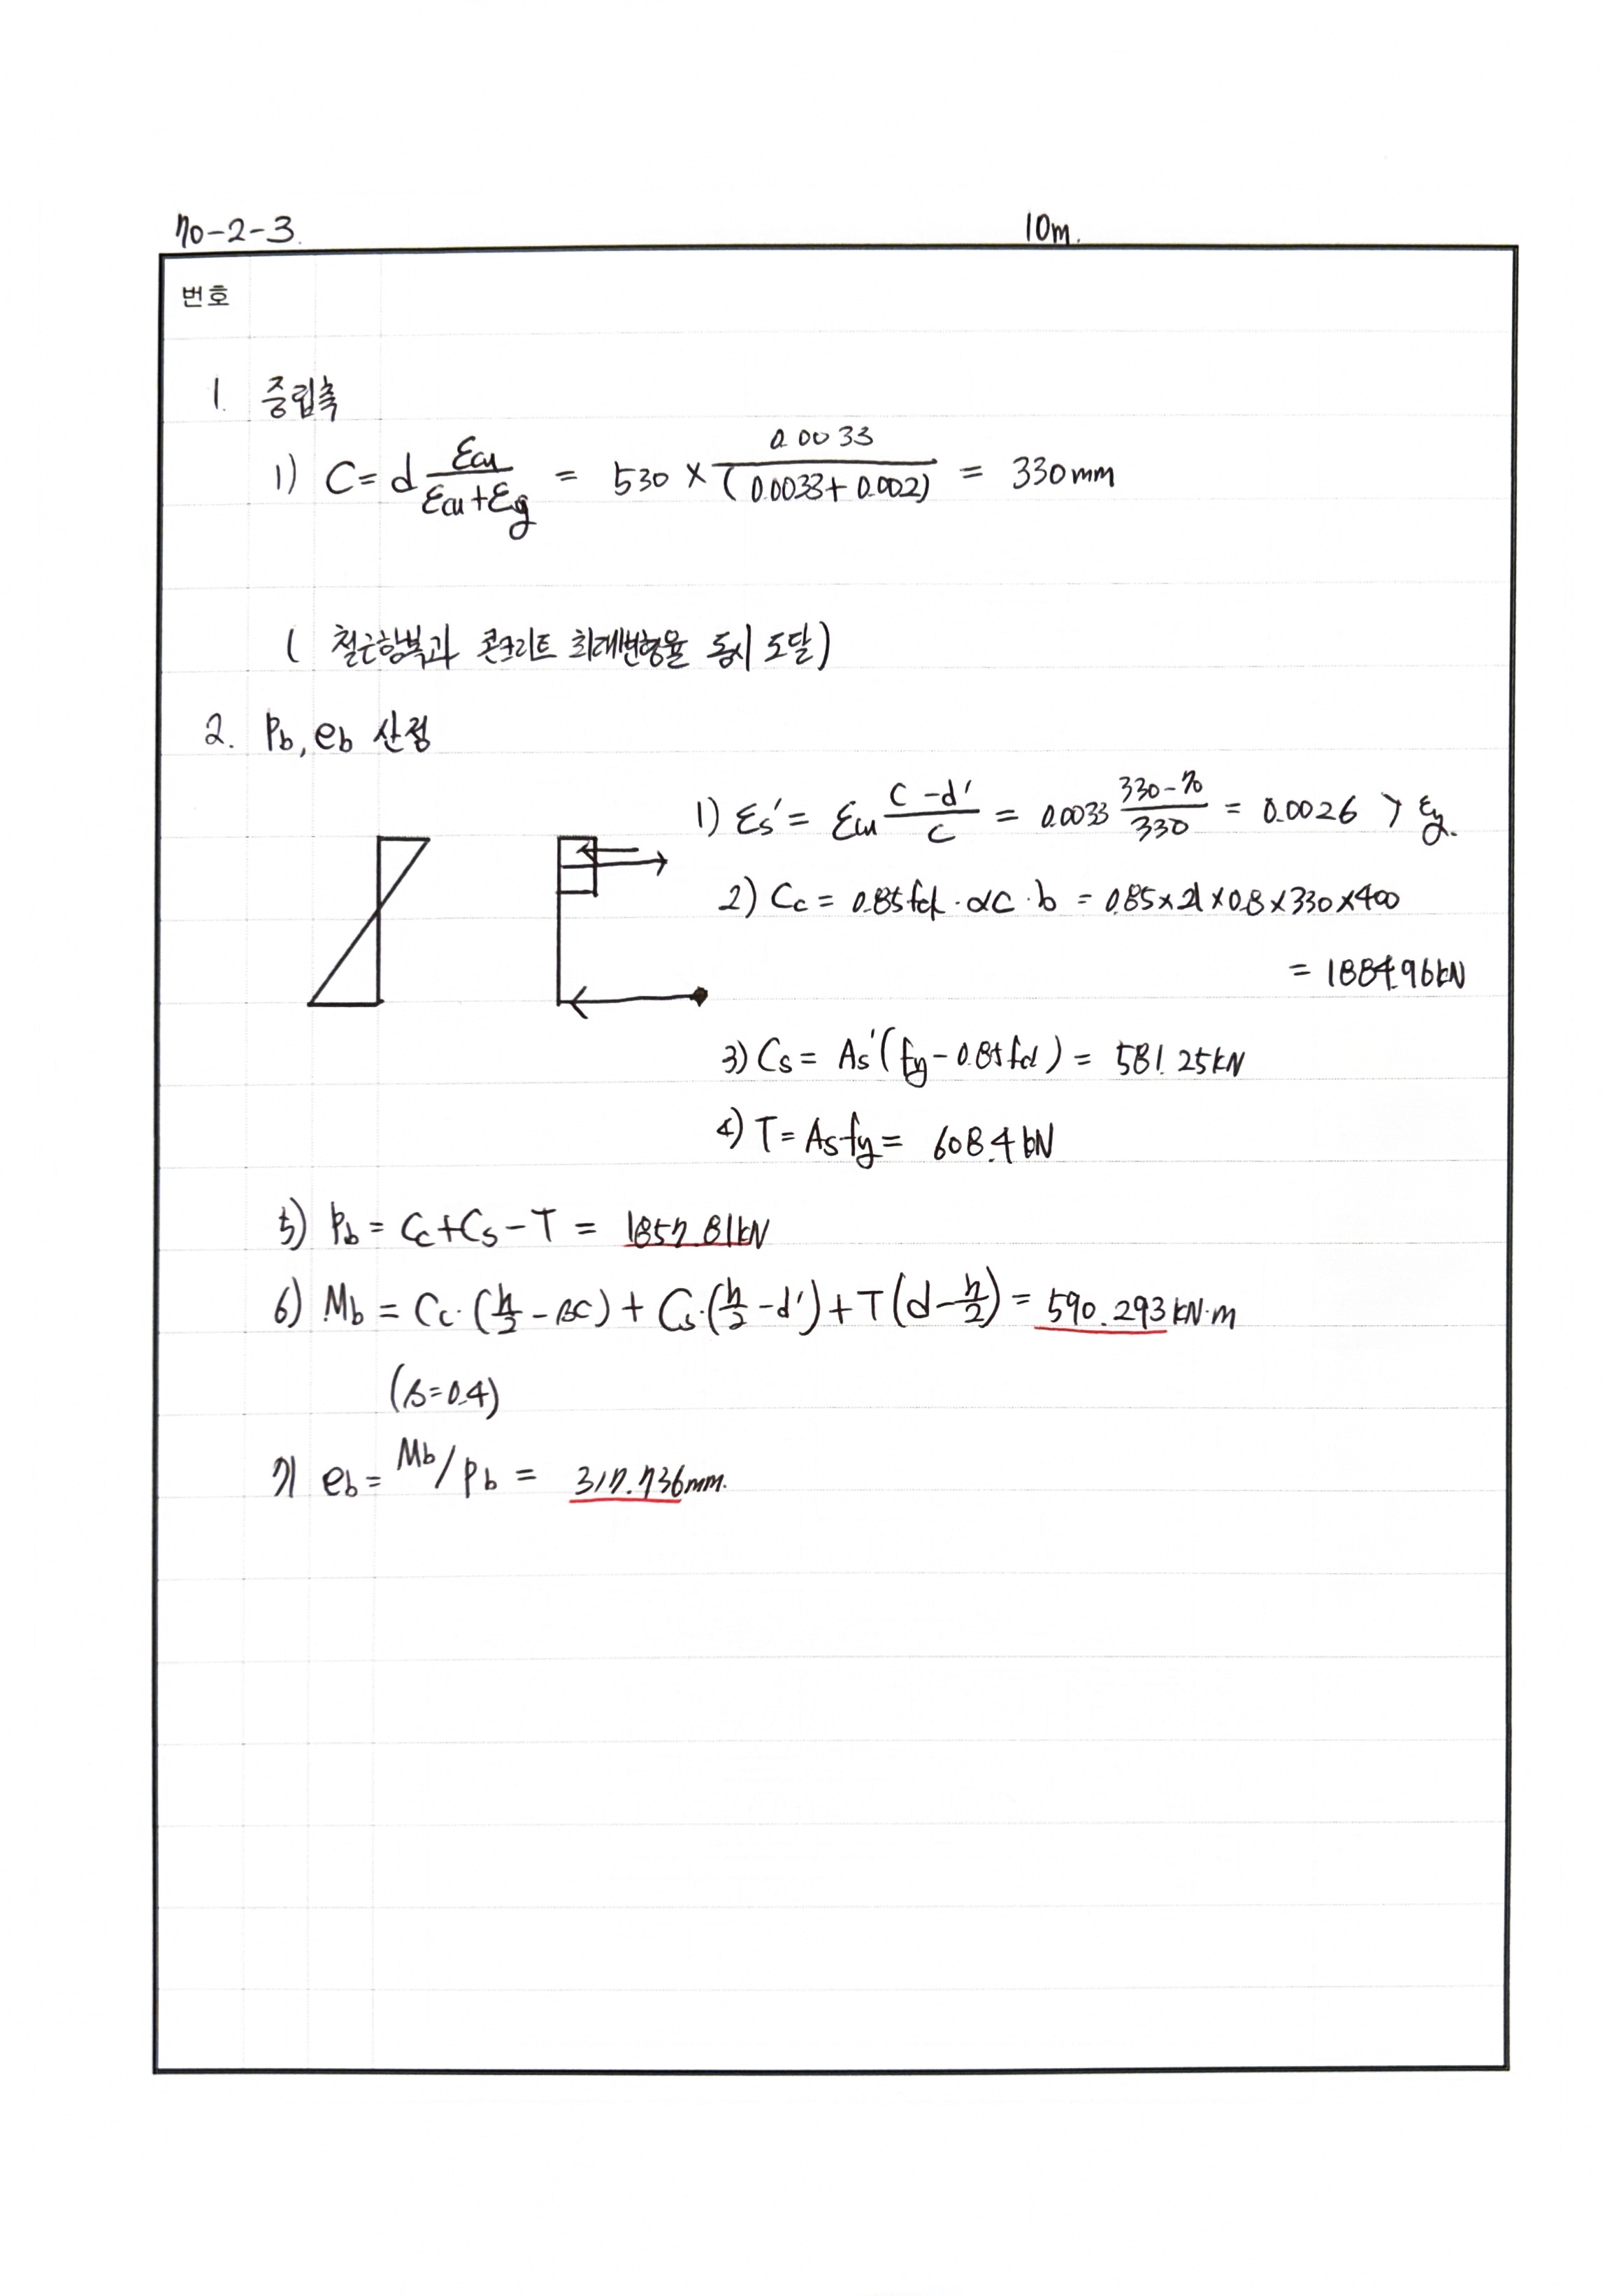 70-2-3.
10m.
번호
1. 중립축
1) C = d εcu/(εcu+εy) = 530 × 0.0033/(0.0033+0.002) = 330mm
( 철근항복과 콘크리트 최대변형율 동시 도달)
2. Pb, eb 산정
1) εs' = εcu (C-d')/C = 0.0033 (330-70)/330 = 0.0026 > εy.
2) Cc = 0.85fck·αC·b = 0.85×21×0.8×330×400
= 1884.96kN
3) Cs = As'(fy-0.85fck) = 581.25kN
4) T = As·fy = 608.4kN
5) Pb = Cc+Cs-T = 1857.81kN
6) Mb = Cc·(h/2-βC) + Cs·(h/2-d') + T(d-h/2) = 590.293kN·m
(β=0.4)
7) eb = Mb/Pb = 317.736mm.